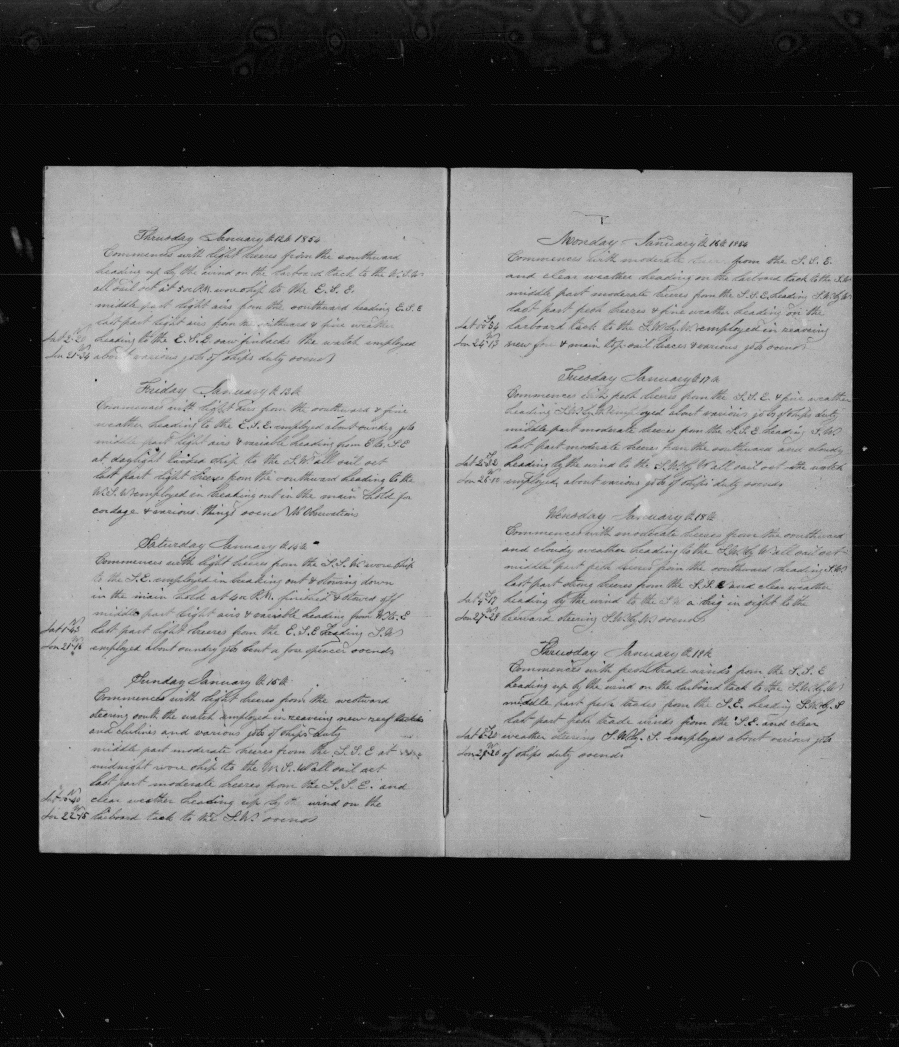 Thursday January th 12th 1854
Commences with light breeses from the southward
heading up by the wind on the larboard tack to the W.S.W
all sail out at 5 oc P.M. wore ship to the E.S.E.
middle part light airs from the southward heading E.S.E
last part light airs from the southward & fine weather
heading to the E.S.E saw finbacks the watch employed
about various jobs of ships duty so ends
Friday January th 13th
Commences with light airs from the southward & fine
weather heading to the E.S.E. employed about sundry jobs
middle part light airs & variable heading from E to S.E
at daylight tacked ship to the S.W. all sail set
last part light breeses from the southward heading to the
W.S.W. employed in breaking out in the main hold for
cordage & various things so ends No Observations
Saturday January th 14th
Commences with light breeses from the S.S.W. wore ship
to the S.E. employed in breaking out & stowing down
in the main hold at 4 oc P.M. finished & stowed off
middle part light airs & variable heading from
last part light breeses from the E.S.E heading S.W
employed about sundry jobs bent a fore spencer so ends
Sunday January th 15th
Commences with light breeses from the westward
steering south the watch employed in reaving new reef tackles
and clewlines and various jobs of ships duty
middle part moderate breeses from the S.S.E at
midnight wore ship to the W.S.W all sail set
last part moderate breeses from the S.S.E. and
clear weather heading up by the wind on the
larboard tack to the S.W. so ends
Monday January th 16th 1854
Commences with moderate breeses from the S.S.E.
and clear weather heading on the larboard tack to the S.W
middle part moderate breeses from the S.S.E. heading S.W.by W
last part fresh breeses & fine weather heading on the
larboard tack to the S.W.by W. employed in reaving
new fore & main top-sail braces & various jobs so ends
Tuesday January th 17th
Commences with fresh breeses from the S.S.E & fine weather
heading S.W.by W. employed about various jobs of ships duty
middle part moderate breeses from the S.S.E heading S.W.
last part moderate breeses from the southward and cloudy
heading by the wind to the S.W.by W all sail out the watch
employed about various jobs of ships duty so ends
January th 18th
Commences with moderate breeses from the southward
and cloudy weather heading to the S.W.by W all sail out
middle part fresh breeses from the southward heading S.W
last part strong breeses from the S.S.E and clear weather
heading by the wind to the S W a brig in sight to the
leeward steering S.W.by W. so ends
Thursday January th 19th
Commences with fresh trade winds from the S.S.E
heading up by the wind on the larboard tack to the S.W.by W
middle part fresh trades from the S.E. heading S.W.by S
last part fresh trade winds from the S.E. and clear
weather steering S.W.by.S. employed about various jobs
of ships duty so ends